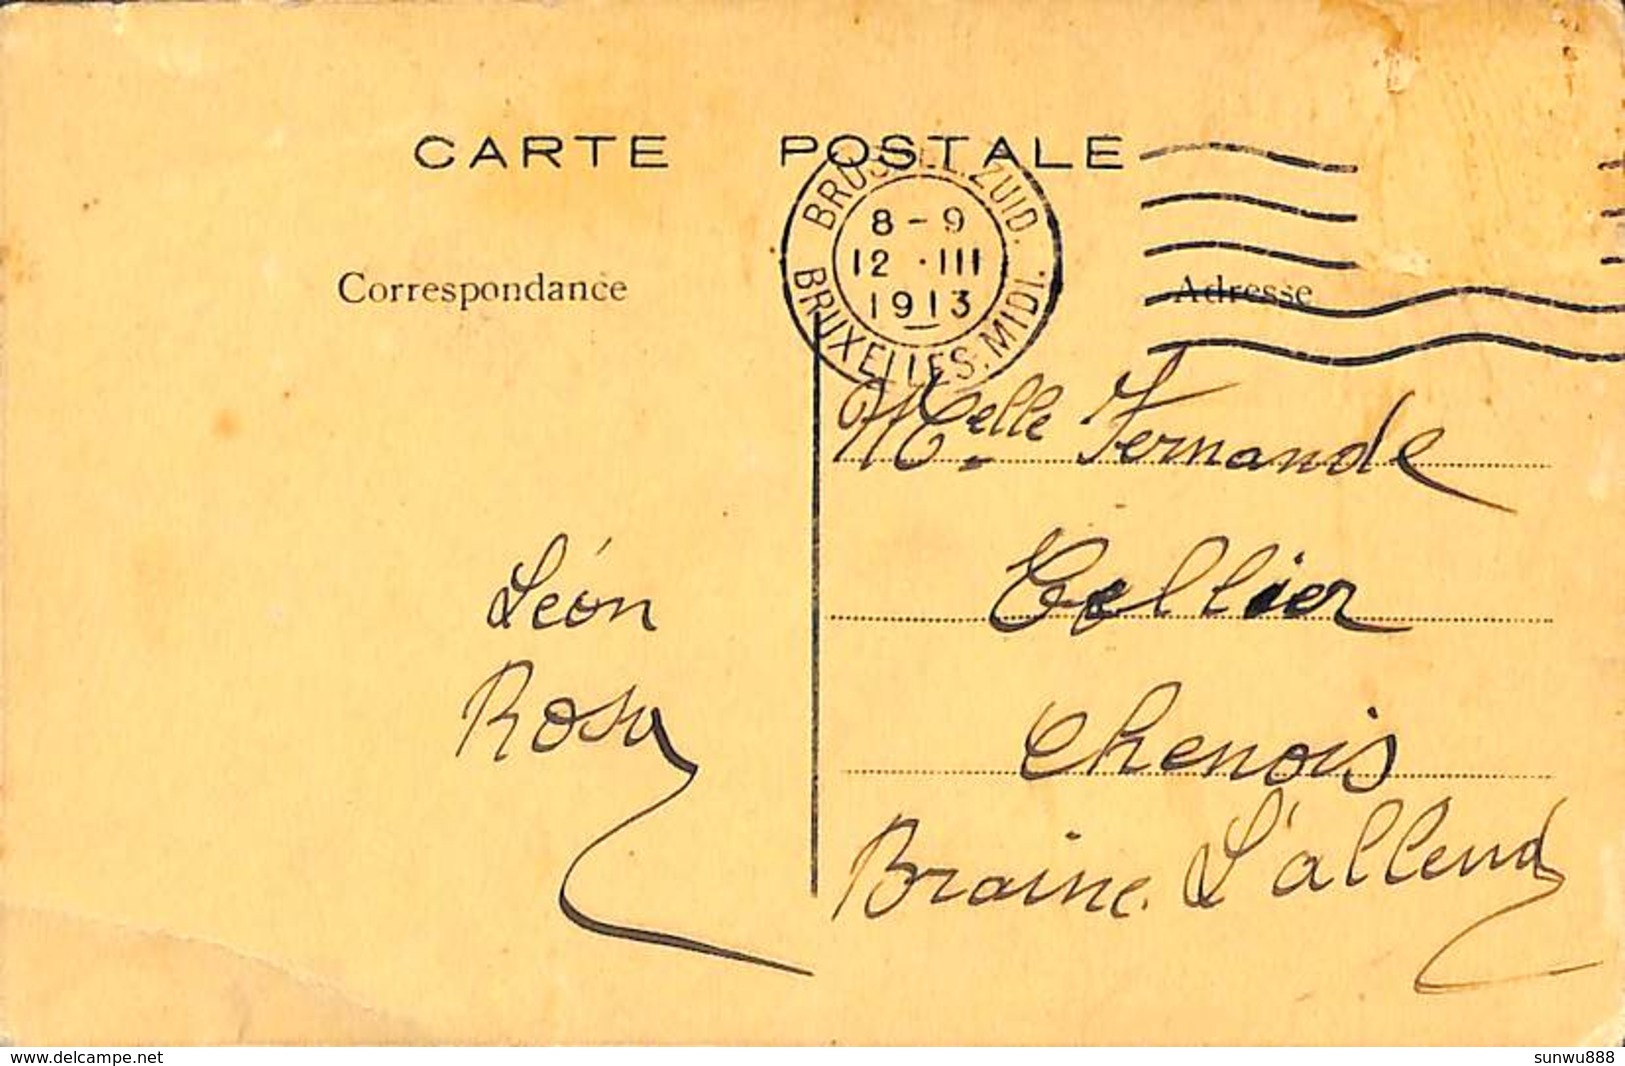 CARTE POSTALE
BRUSSEL.ZUID.
8-9
12 .III
1913
BRUXELLES.MIDI.
Correspondance
Adresse
Melle Fernande
Léon
Rosa
Chenois
Braine L'alleud
www.delcampe.net
sunwu888